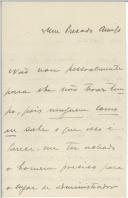 Meu Prezado Amigo
Não vou pessoalmente
para não
pois ninguem como
eu sabe o que isso é
ter achado
o homem preciso para
o logar de administrador